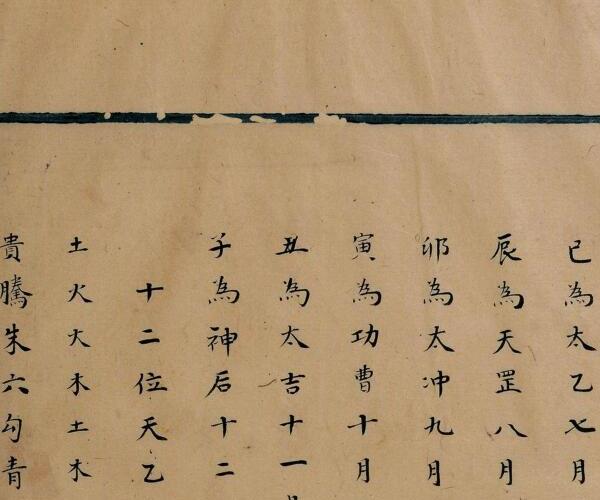 巳為太乙七月
辰為天罡八月
卯為太冲九月
寅為功曹十月
丑為太吉十一月
子為神后十二
十二位天乙
土火火木土木
貴騰朱六勾青